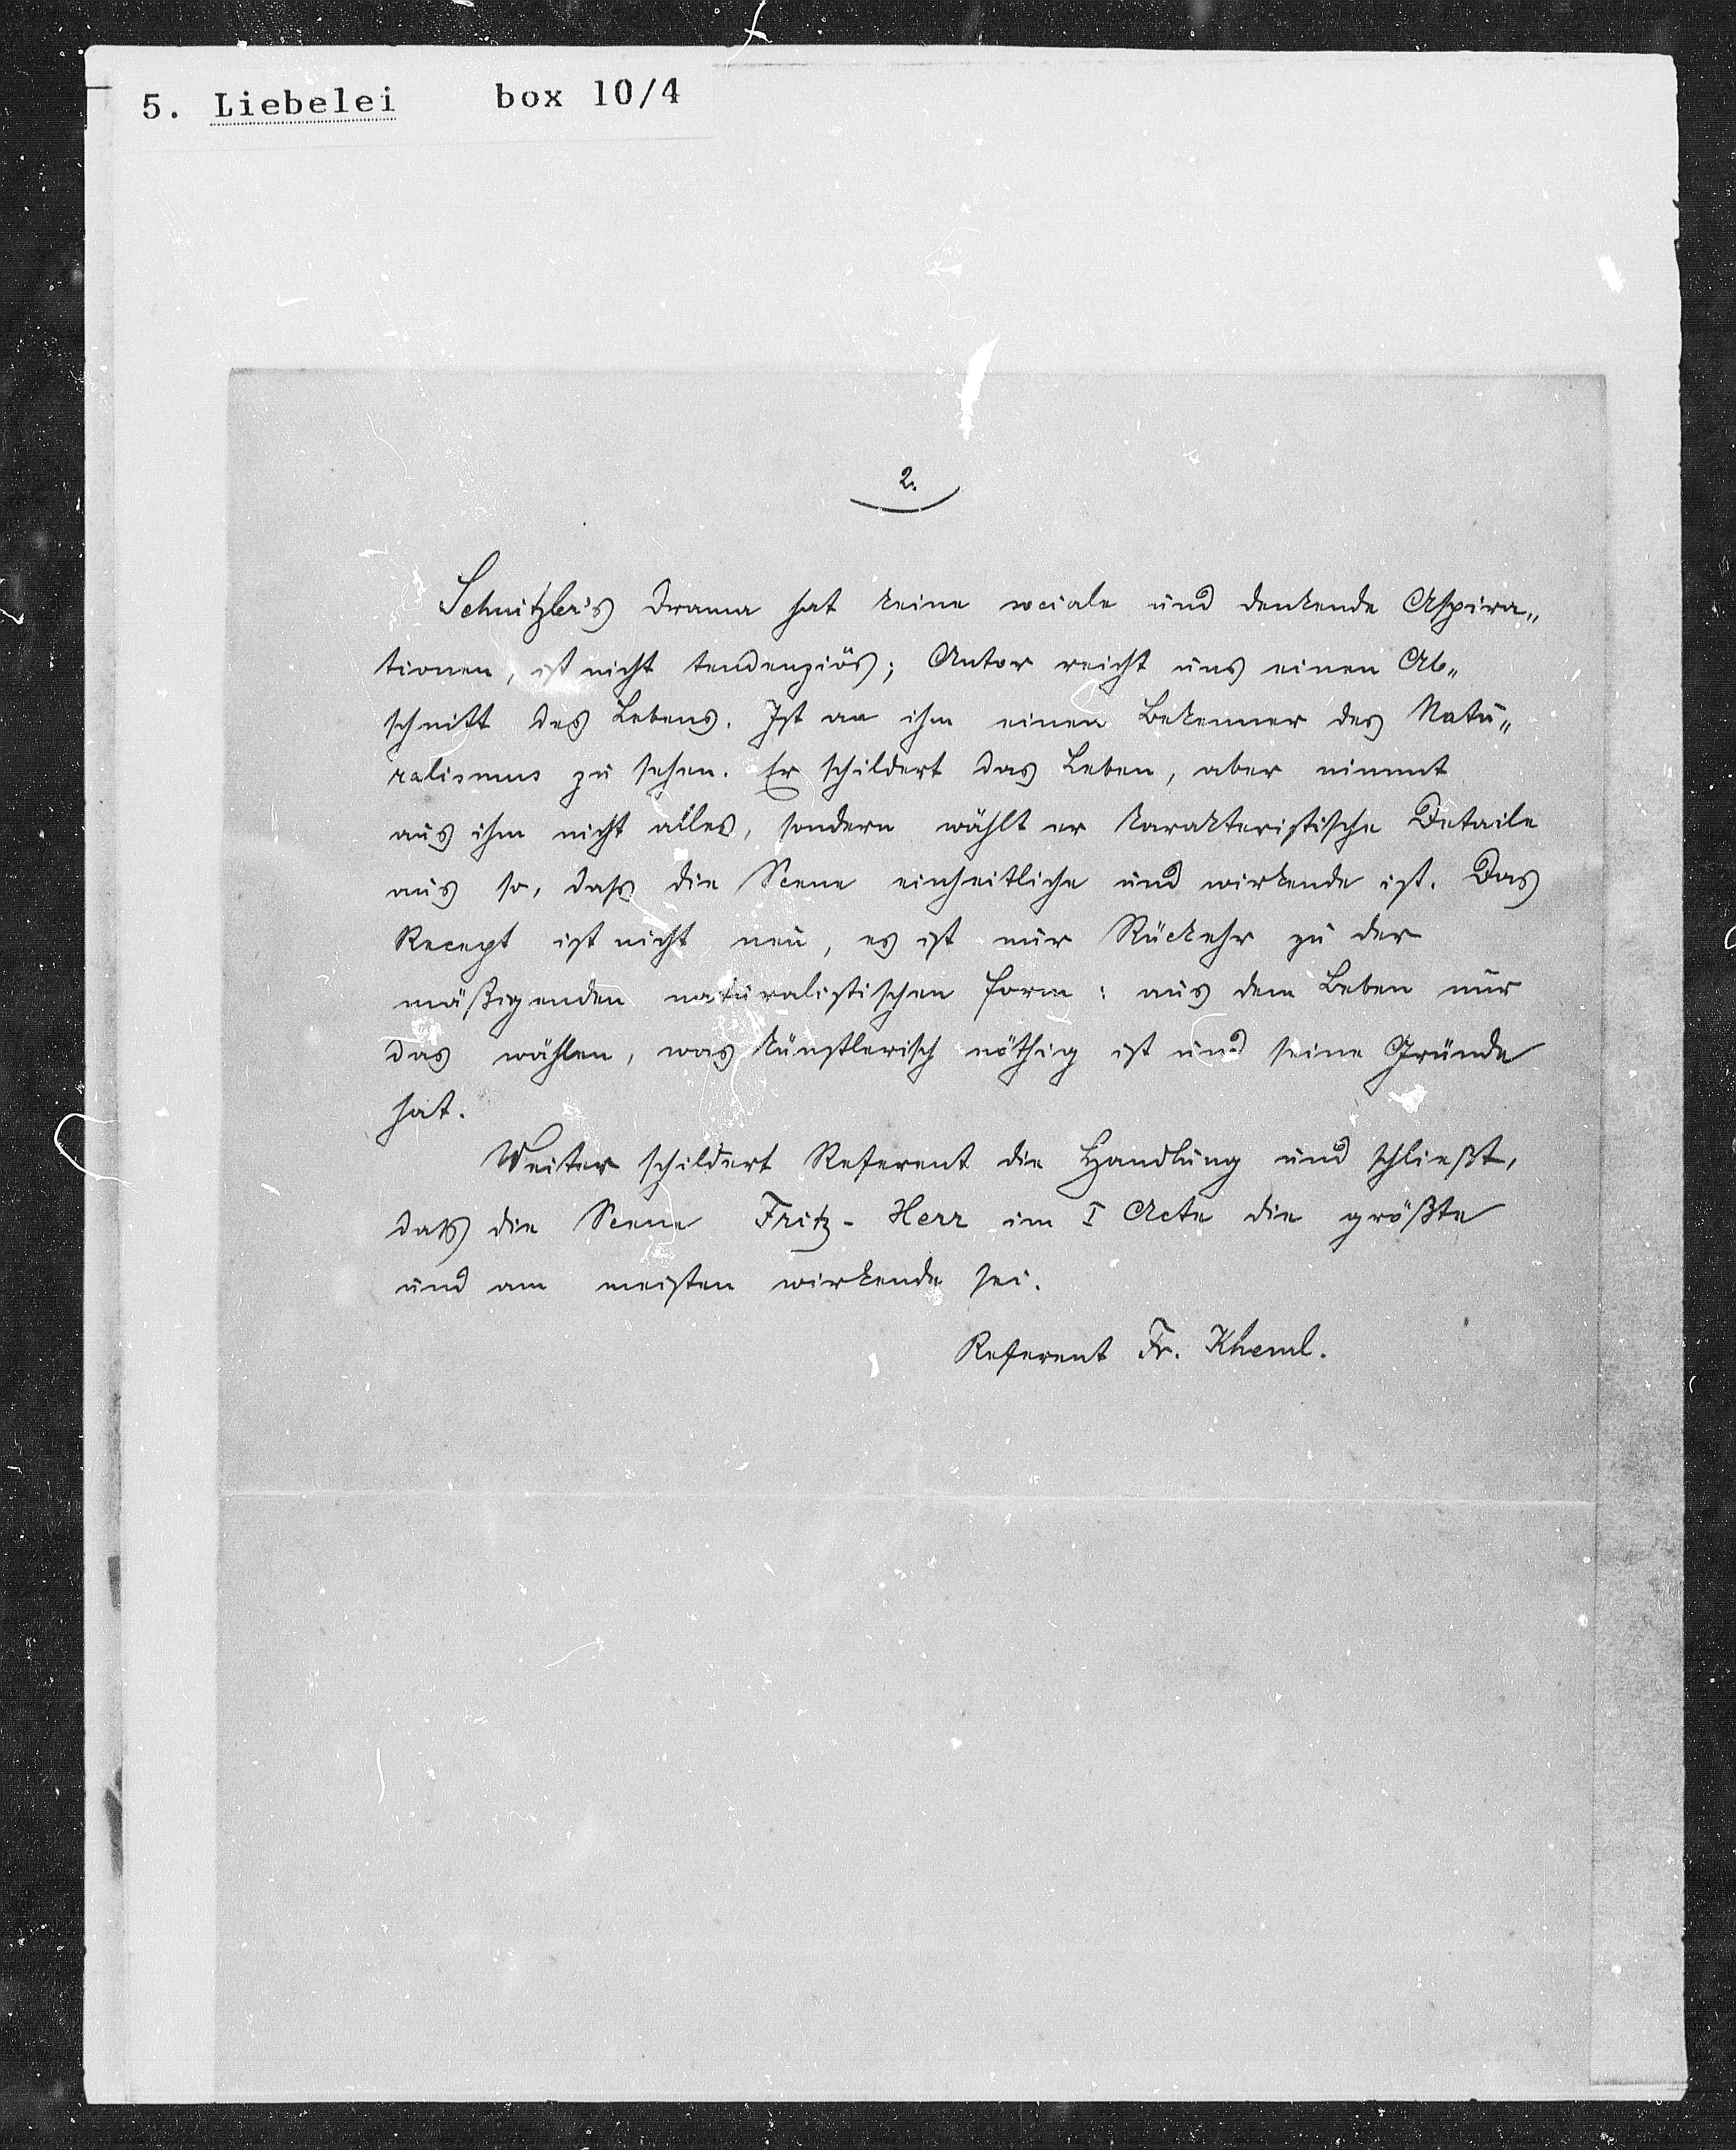 5. Liebelei box 10/4
2.
Schnitzler's Drama hat keine sociale und denkende Aspira„
tionen, ist nicht tendenziös; Autor reicht uns einen Ab„
schnitt des Lebens. Ist an ihm einen Bekenner des Natu„
ralismus zu sehen. Er schildert das Leben, aber nimmt
aus ihm nicht alles, sondern wählt er karakteristische Detaile
aus so, dass die Scene einheitliche und wirkende ist. Das
Recept ist nicht neu, es ist nur Rückehr zu der
mäßigenden naturalistischen Form: aus dem Leben nur
das wählen, was künstlerisch nöthig ist und seine Gründe
hat.
Weiter schildert Referent die Handlung und schließt,
dass die Scene Fritz - Herr im I Acte die größte
und am meisten wirkende sei.
Referent Fr. Kheml.